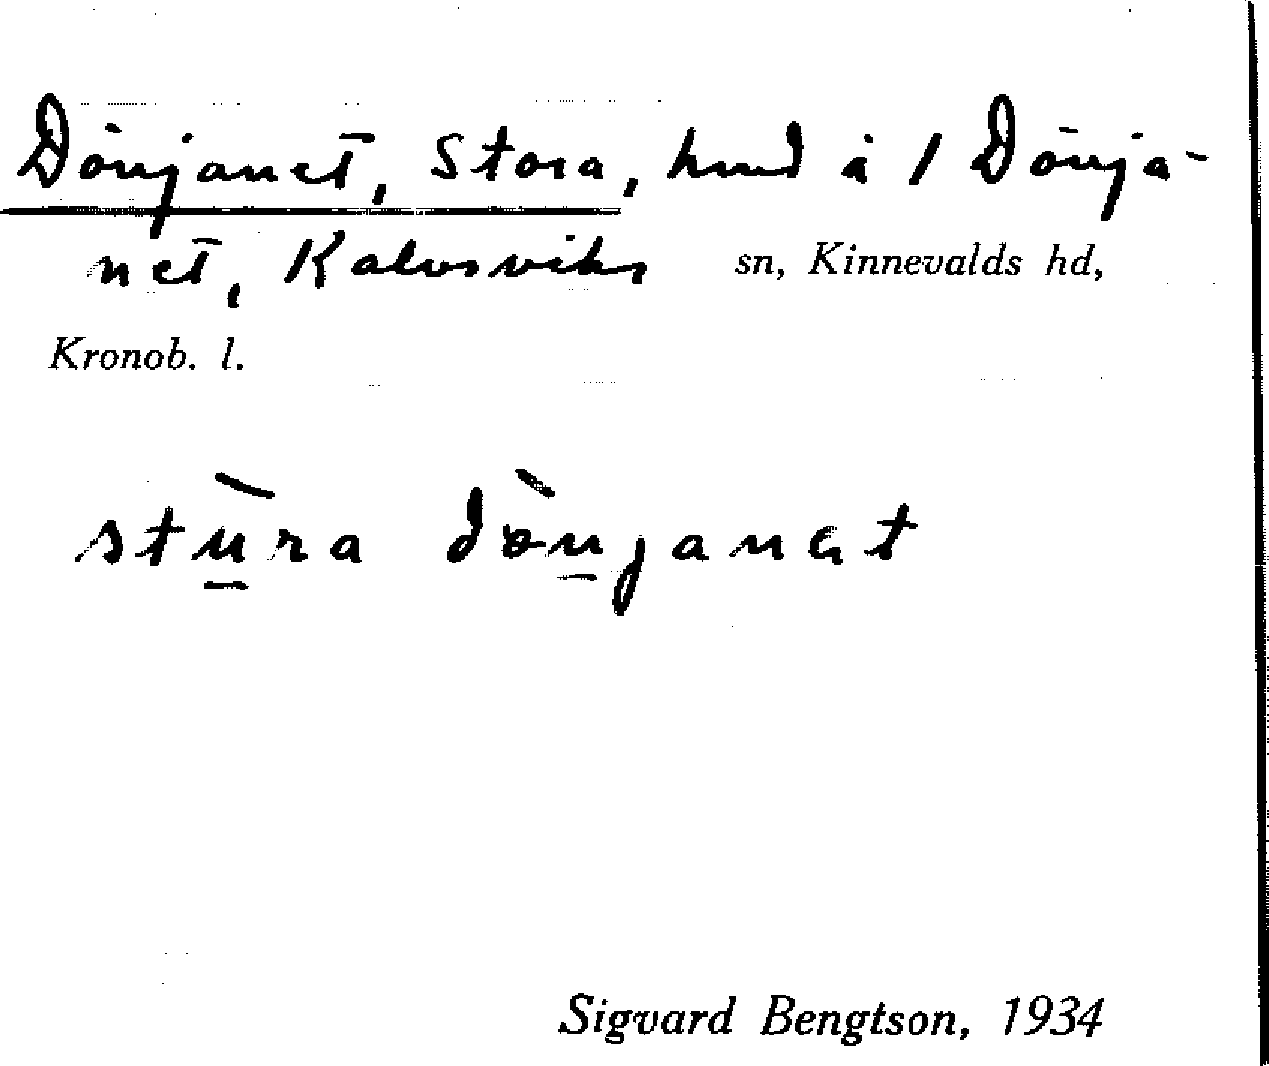 Dönjanet, Stora, hmd å 1 Dönja-
net, Kalvsviks sn, Kinnevalds hd,
Kronob. l.
stù̱ra dòn̠janat
Sigvard Bengtson, 1934